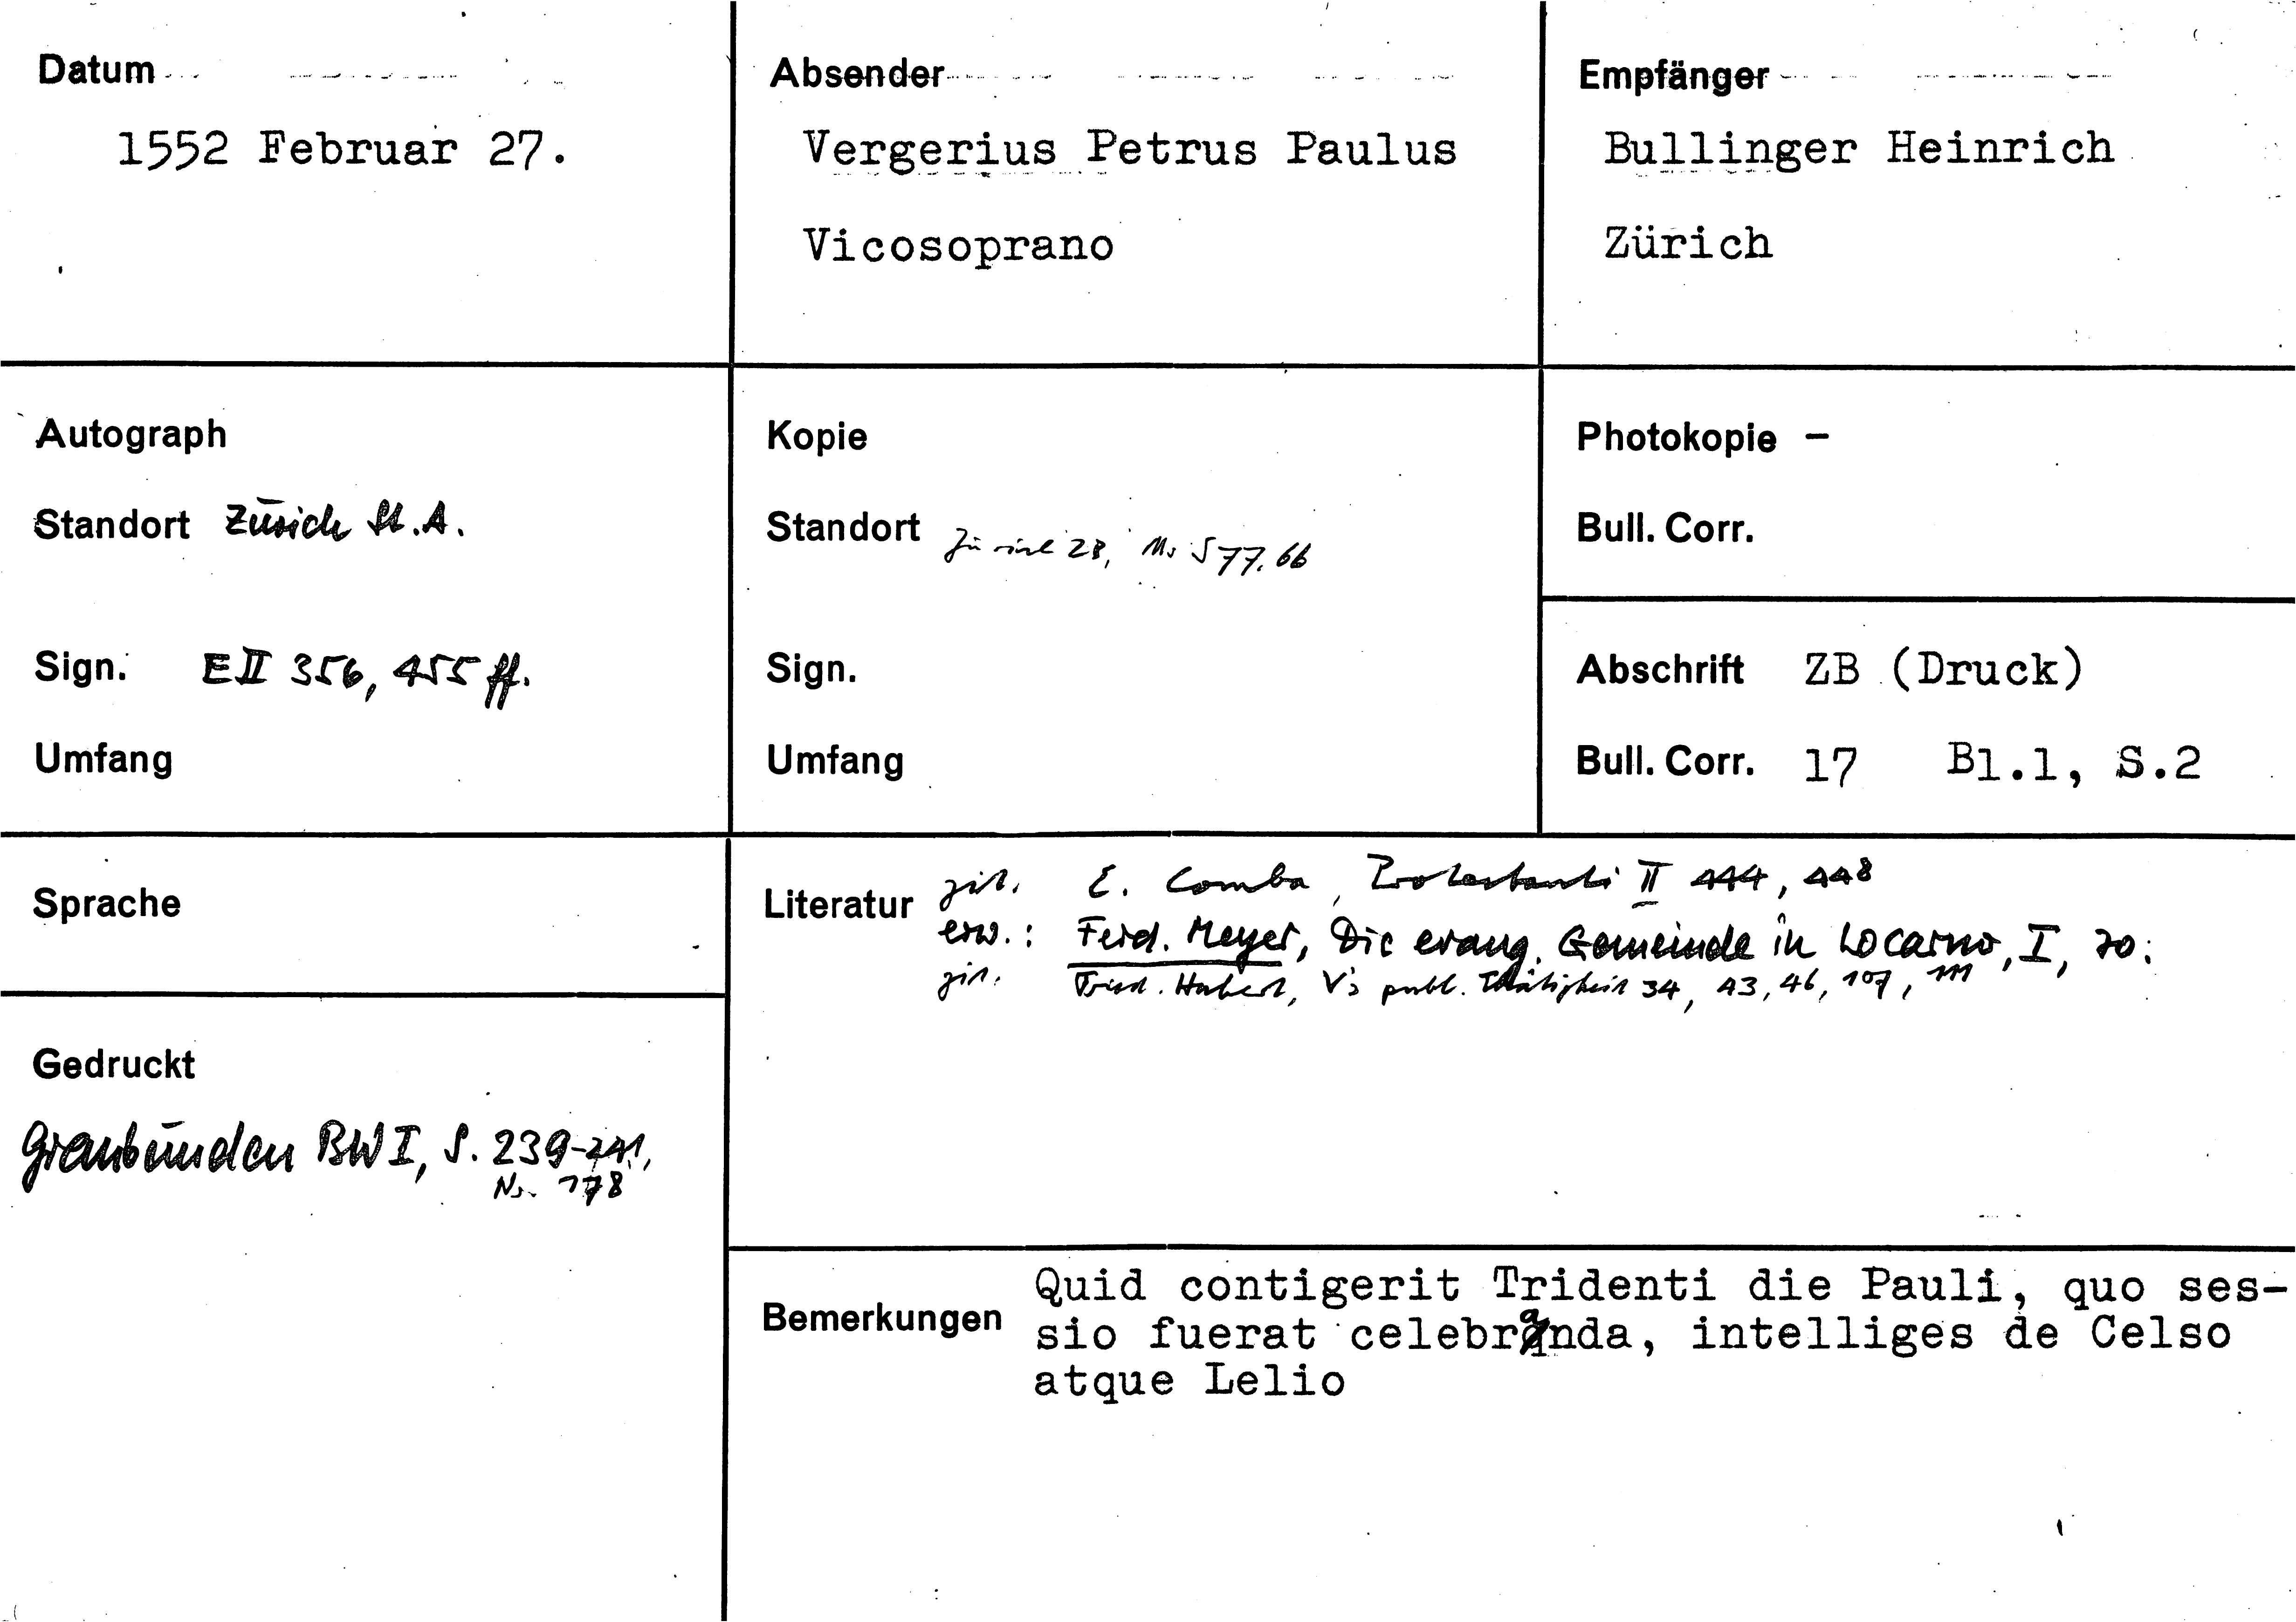 Datum
1552 Februar 27.
Absender
Vergerius Petrus Paulus
Vicosoprano
Empfänger
Bullinger Heinrich
Zürich
Autograph
Standort Zürich St.A.
Sign. E II 356, 455 ff.
Umfang
Kopie
Standort Zürich ZB, Ms S 77.66
Sign.
Umfang
Photokopie -
Bull. Corr.
Abschrift ZB (Druck)
Bull. Corr. 17 Bl.1, S.2
Sprache
Gedruckt
Graubünden BW I, S. 239-241,
Nr. 178
Literatur zit. E. Comba, Protestanti II 444, 448
erw.: Ferd. Meyer, Die evang. Gemeinde in Locarno, I, 70.
zit. Fried. Hubert, V's publ. Thätigkeit 34, 43, 46, 107, 111
Bemerkungen Quid contigerit Tridenti die Pauli, quo ses-
sio fuerat celebranda, intelliges de Celso
atque Lelio